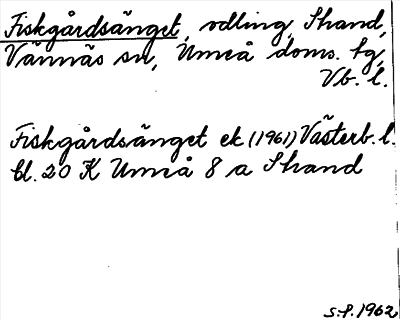 Fiskgårdsänget, odling, Strand,
Vännäs sn, Umeå doms. tg,
Vb. l.
Fiskgårdsänget ek (1961) Västerb. l.
bl. 20 K Umeå 8 a Strand
S.F. 1962